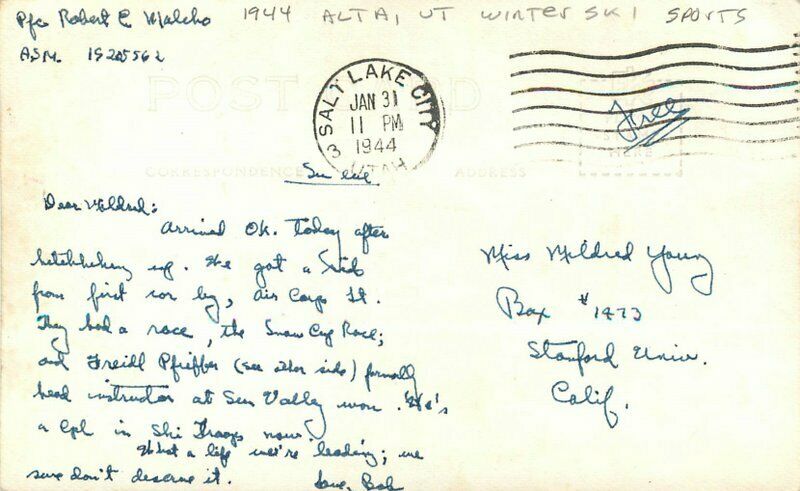 Pfc Robert E Malcho
1944 ALTA, UT WINTER SKI SPORTS
ASN. 19205562
POST CARD
SALT LAKE CITY
JAN 31
11 PM
1944
3 UTAH
Free
HERE
CORRESPONDENCE
ADDRESS
Sun eve
Dear Mildred:
Arrived OK. Today after
hitchhiking up. We got a ride
from first car by, Air Corps Lt.
They had a race, the Snow Cup Race;
and Freidl Pfeiffer (see other side) formally
head instructor at Sun Valley won. He's
a Cpl in Ski Troops now.
What a life we're leading; we
sure don't deserve it.
Love, Bob
Miss Mildred Young
Box #1473
Stanford Univ.
Calif.